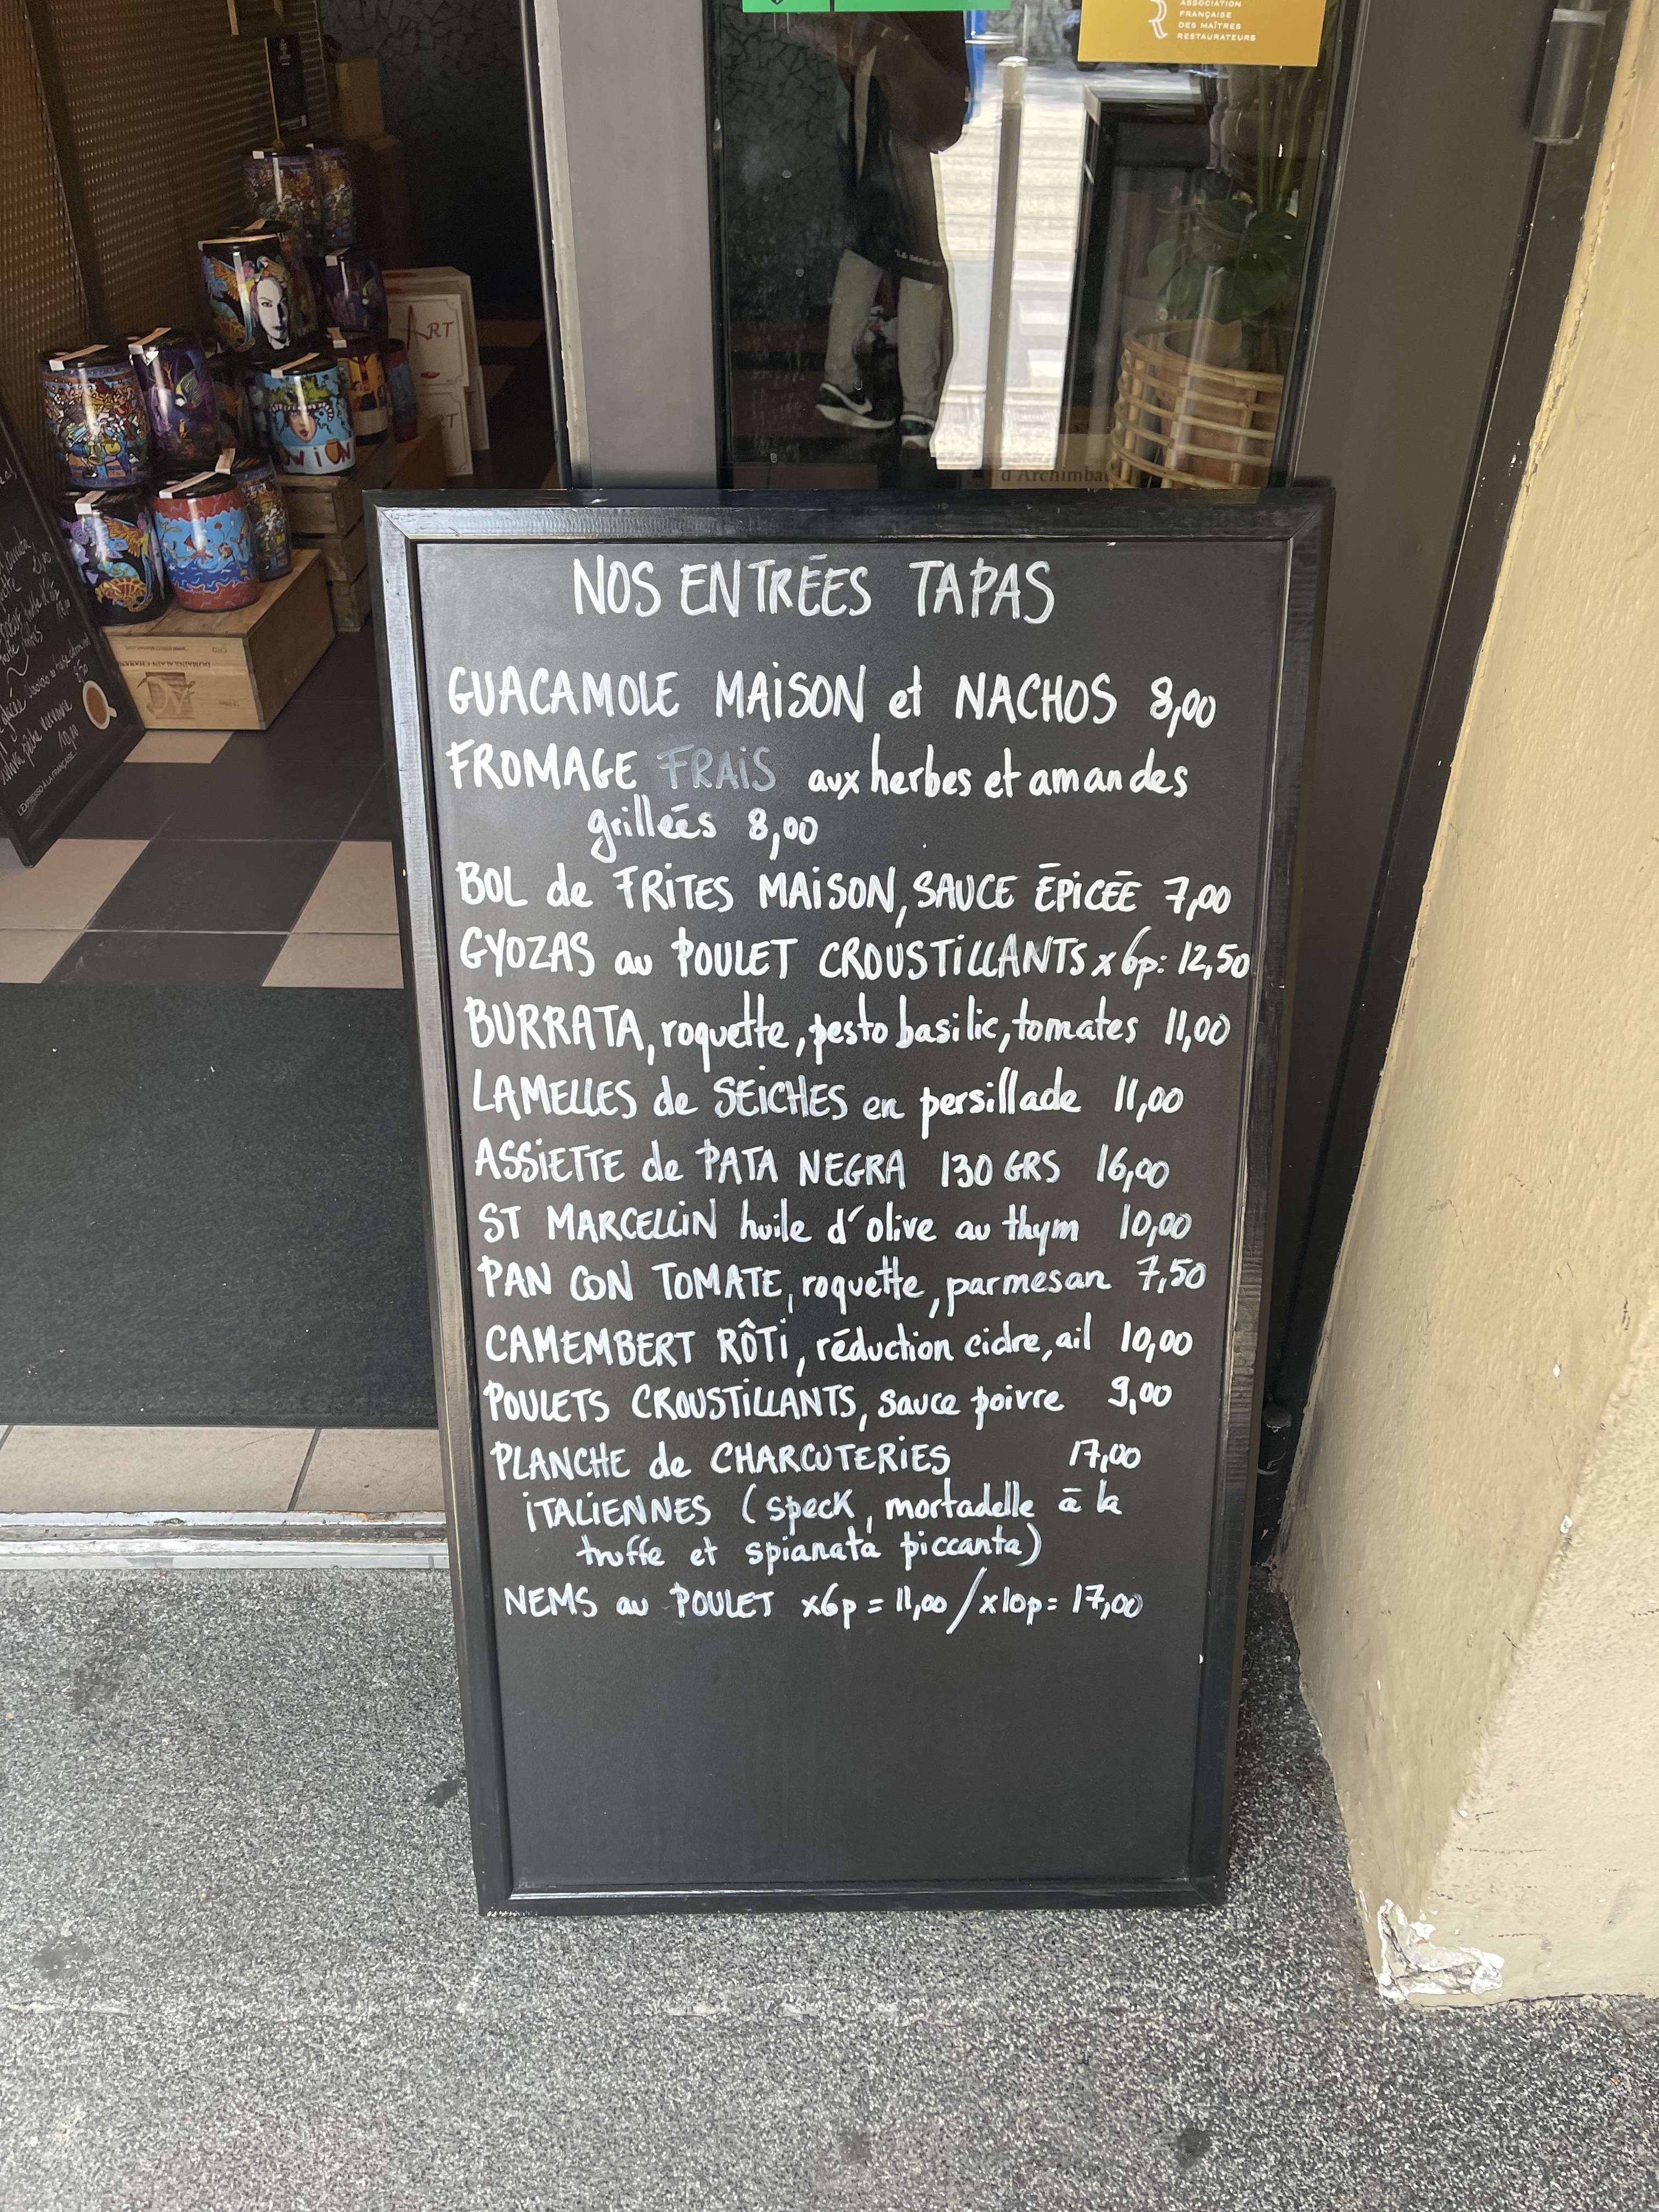 ASSOCIATION
FRANÇAISE
DES MAÎTRES
RESTAURATEURS
ART
d'Archimbau
NOS ENTRÉES TAPAS
GUACAMOLE MAISON et NACHOS 8,00
FROMAGE FRAIS aux herbes et amandes
grillées 8,00
BOL de FRITES MAISON, SAUCE ÉPICÉE 7,00
GYOZAS au POULET CROUSTILLANTS x6p: 12,50
BURRATA, roquette, pesto basilic, tomates 11,00
LAMELLES de SEICHES en persillade 11,00
ASSIETTE de PATA NEGRA 130 GRS 16,00
ST MARCELLIN huile d'olive au thym 10,00
PAN CON TOMATE, roquette, parmesan 7,50
CAMEMBERT RÔTI, réduction cidre, ail 10,00
POULETS CROUSTILLANTS, sauce poivre 9,00
PLANCHE de CHARCUTERIES 17,00
ITALIENNES (speck, mortadelle à la
truffe et spianata piccanta)
NEMS au POULET x6p = 11,00 / x10p = 17,00
L'EXPRESSO À LA FRANÇAISE